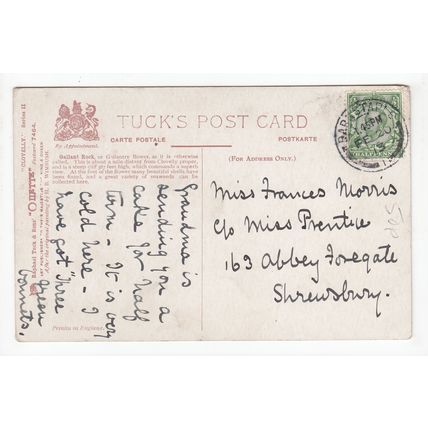 TUCK'S POST CARD
CARTE POSTALE
POSTKARTE
By Appointment.
(FOR ADDRESS ONLY.)
"CLOVELLY." Series II
Raphael Tuck & Sons' "OILETTE" Postcard 7464.
After the original painting by H. B. WIMBUSH.
Gallant Rock, or Gallantry Bower, as it is otherwise
called. This is about a mile distant from Clovelly proper,
and is a steep cliff 387 feet high, which commands a superb
view. At the foot of the Bower many beautiful shells have
been found, and a great variety of seaweeds can be
collected here.
Grandma is
sending you a
cake for half
term - It is very
cold here - I
have got "Three
Green
Bonnets.
Printed in England.
BARNSTAPLE
Miss Frances Morris
c/o Miss Prentice
163 Abbey Foregate
Shrewsbury.